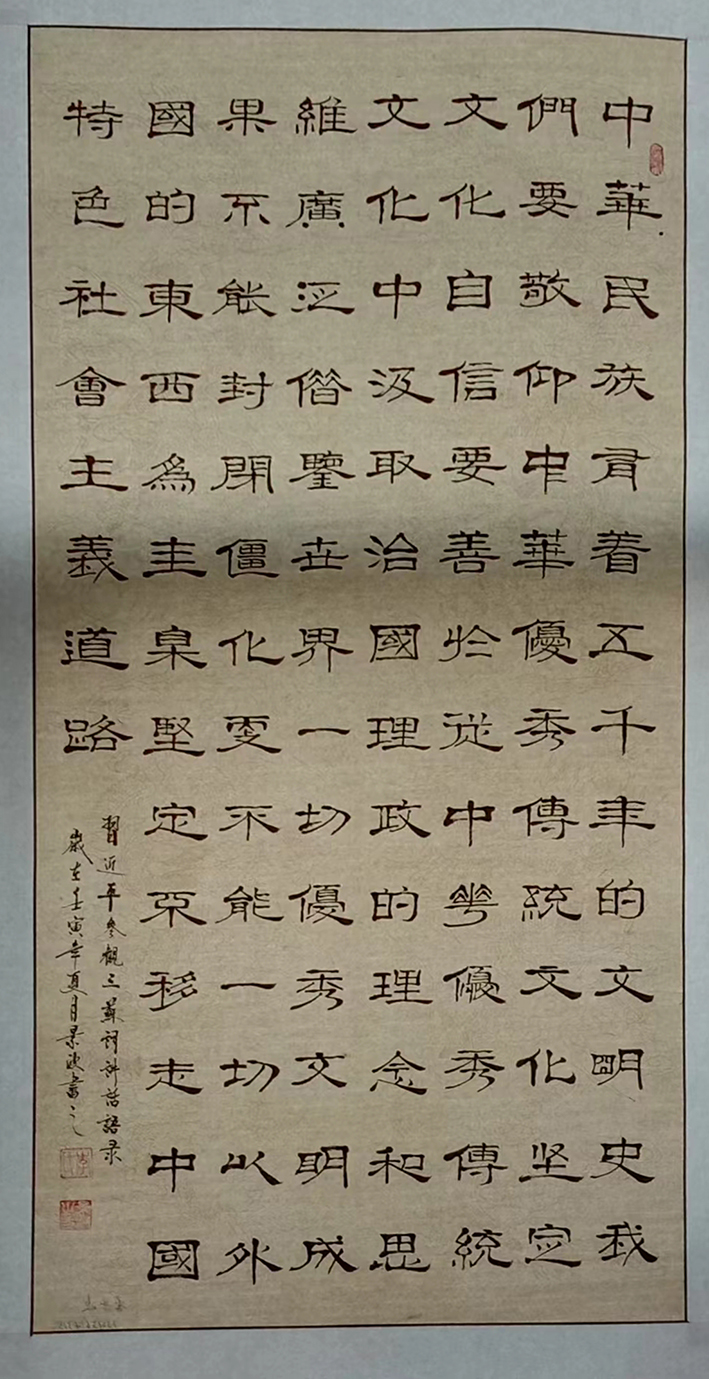 中華民族有着五千年的文明史我
們要敬仰中華優秀傳統文化坚定
文化自信要善於從中華優秀傳統
文化中汲取治國理政的理念和思
維廣泛借鑒世界一切優秀文明成
果不能封閉僵化更不能一切以外
國的東西為圭臬堅定不移走中國
特色社會主義道路
習近平參觀三蘇祠講話語录
歲在壬寅年夏月景書之